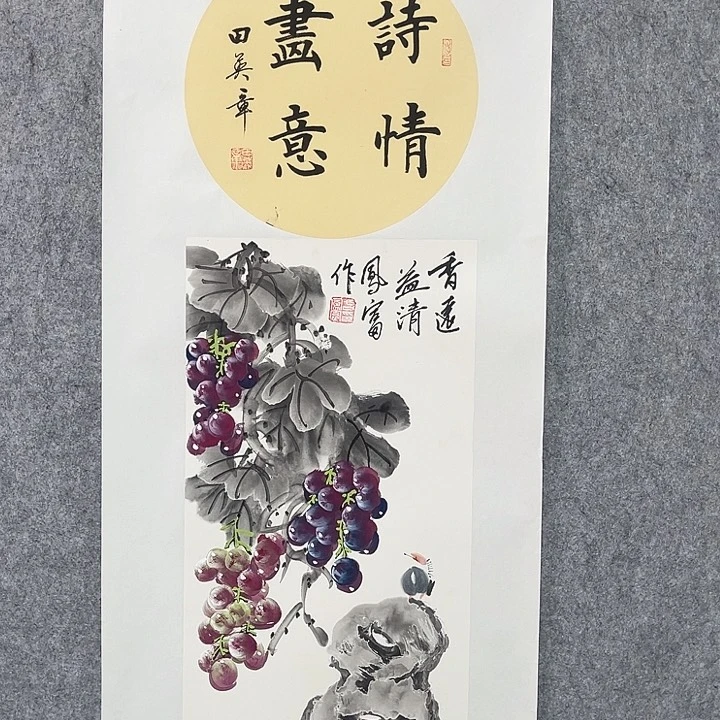 詩情
畫意
田英章
香遠
益清
鳳富
作